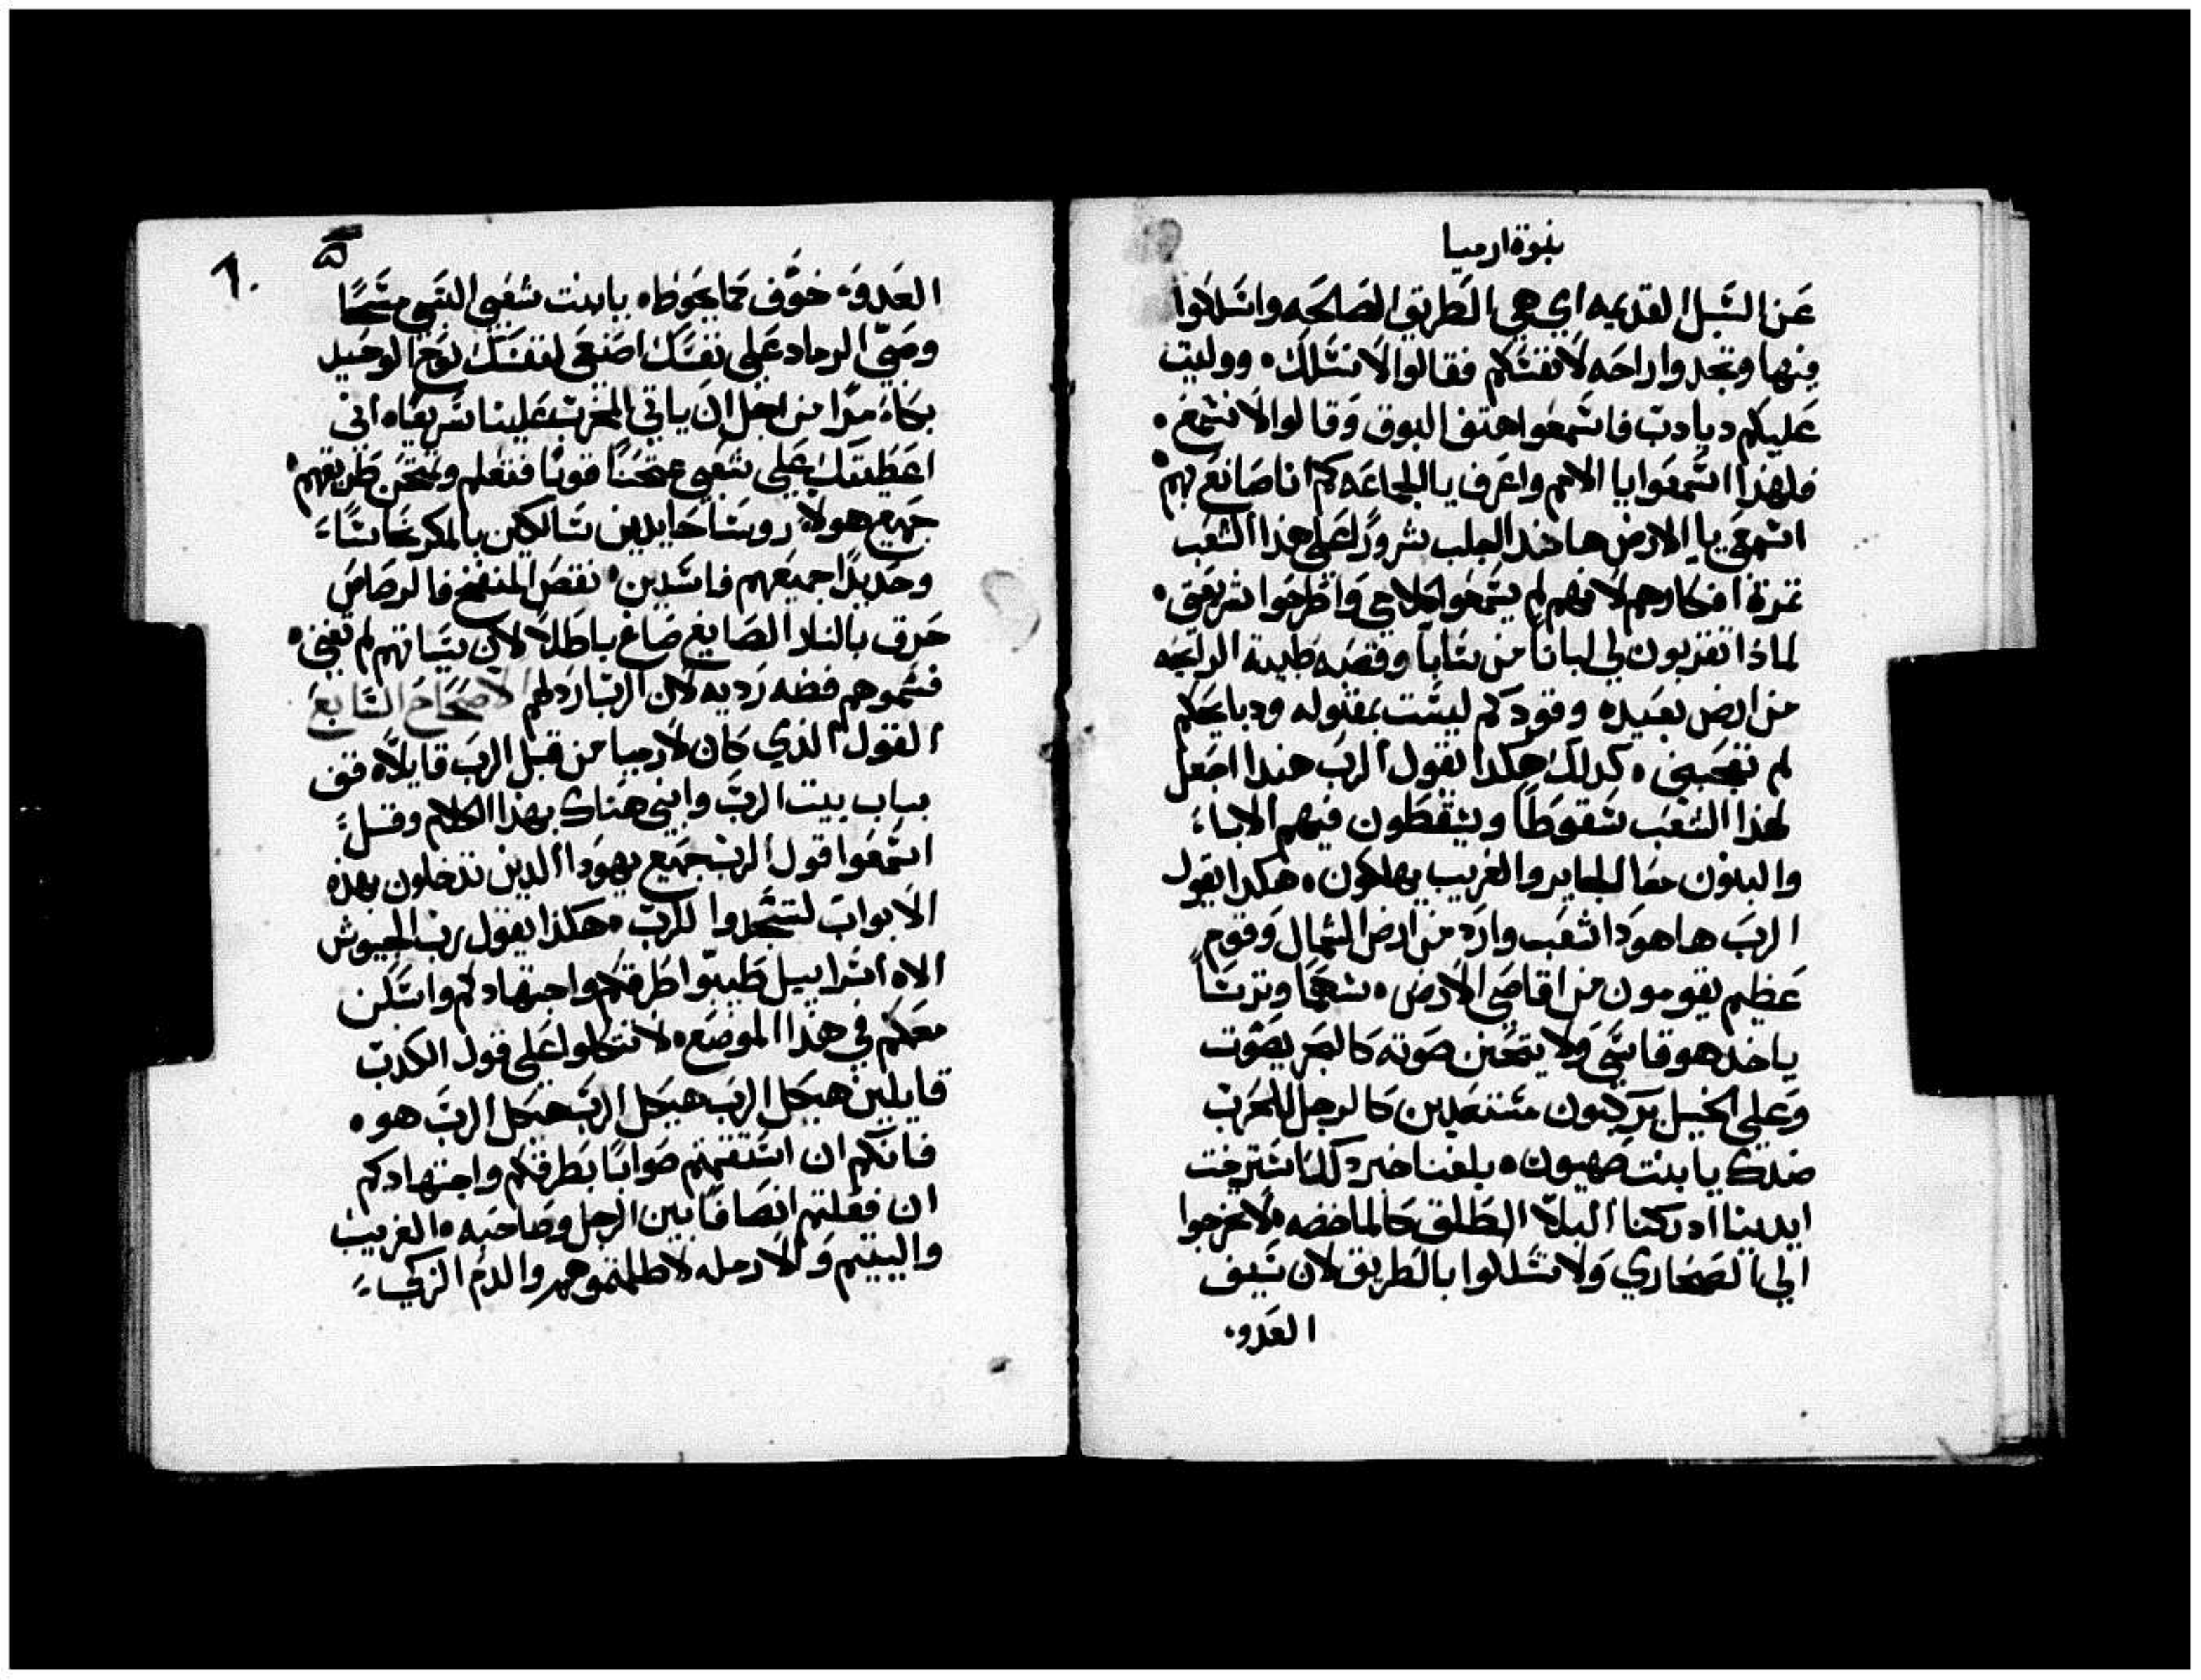 نبوة ارميا
عَن السَبل القديمه اي هي الطريق الصالحه واسلكوا
فيها وتجدوا راحه لانفسكم فقالوا لا نسلك ٥ ووليت
عليكم ديادبَ فاسمعوا هتف البوق وقالوا لا نسمع ٠
فلهذا اسمعوا يا الامم واعرف يا الجماعه كم انا صانع بهم
اسمعي يا الارض هاندا اجلب شرورًا على هذا الشعب
ثمرة افكارهم لانهم لم يسمعوا كلامي واطرحوا شريعتي ٠
لماذا تقربون لي لبانا من سابا وقصبه طيبة الرايحه
من ارض بعيده وقودكم ليست بمقبوله ودبايحكم
لم تعجبني ٥ كدلك هكدا يقول الرب هندا اجعل
لهذا الشعب سقوطًا ويسقطون فيهم الاباء
والبنون معا الجاير والغريب يهلكون ٥ هكدا يقول
الربَ هاهودا شعب وارد من ارض الشمال وقوم
عَظيم يقومون من اقاصي الارض ٥ سهمًا وترسًا
ياخد هو قاسَي ولا يتحنن صوته كالبحر يصوت
وعلي الخيل يركبون مستعدين كالرجل للحرب
ضدك يا بنت صهيون ٥ بلغنا خبر دكلنا استرخت
ايدينا ادركتنا البلايا الطلق كالماخضه ٥ لا تخرجوا
الي الصحاري ولا تسلكوا بالطريق لان سَيف
العدو٠
٦٠
العَدوَ خوَّف مما يحوطه ٥ يا بنت شعبي البسي مسحًا
ورشي الرماد عَلي نفسَك اصنعي لنفسَك نوح الوحيد
بكاءً مرًا من اجل ان ياتي المخرب علينا سَريعًا ٥ اني
اعَطيتك عَلي شعبي ممتحنًا قويًا فتعلم وتمتحن طريقهم
جَميع هولاء روسَا حايدين سَالكين بالمكر نحاسًا
وحديدًا جميعهم فاسَدين ٠ نقصَ المنفخ فالرصاص
حَرق بالنار الصَايغ صَاغ باطلًا لان سَياتهم لم تفنى ٠
فسَموهم فضه رَديه لان الربَ ارذلهم الاصَحاحَ السَابعَ
القول الذي كان لارميا من قبل الربَ قايلًا ٥ قف
بباب بيت الربَ وابني هناك بهذا الكلام وقل
اسَمعَوا قول الربَ جَميع يهودا الدين تدخلون بهذه
الابوابَ لتسَجدوا للربَ ٠ هكذا يقول ربَ الجيوش
الاه اسَراييل طيبوا طرقكم واجتهادكم واسَكن
معَكم في هذا الموضَع ٥ لا تتكلوا عَلي قول الكدبَ
قايلين هيكل الربَ هيكل الربَ هيكل الربَ هو ٥
فانكم ان استقمتم صَوابًا بطرقكم واجتهادكم
ان فعَلتم انصَافًا بين الرجل وصَاحبه ٥ الغريب
واليتيم والارمله لا ظلمتموهم والدم الزكي